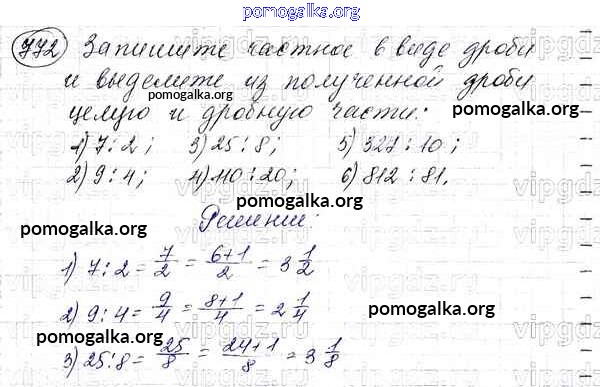 pomogalka.org
772 Запишите частное в виде дроби
и выделите из полученной дроби
pomogalka.org
целую и дробную части:
pomogalka.org
1) 7:2; 3) 25:8; 5) 327:10;
2) 9:4; 4) 110:20; 6) 812:81.
pomogalka.org pomogalka.org
Решение:
1) 7:2 = 7/2 = (6+1)/2 = 3 1/2
2) 9:4 = 9/4 = (8+1)/4 = 2 1/4
pomogalka.org pomogalka.org
3) 25:8 = 25/8 = (24+1)/8 = 3 1/8